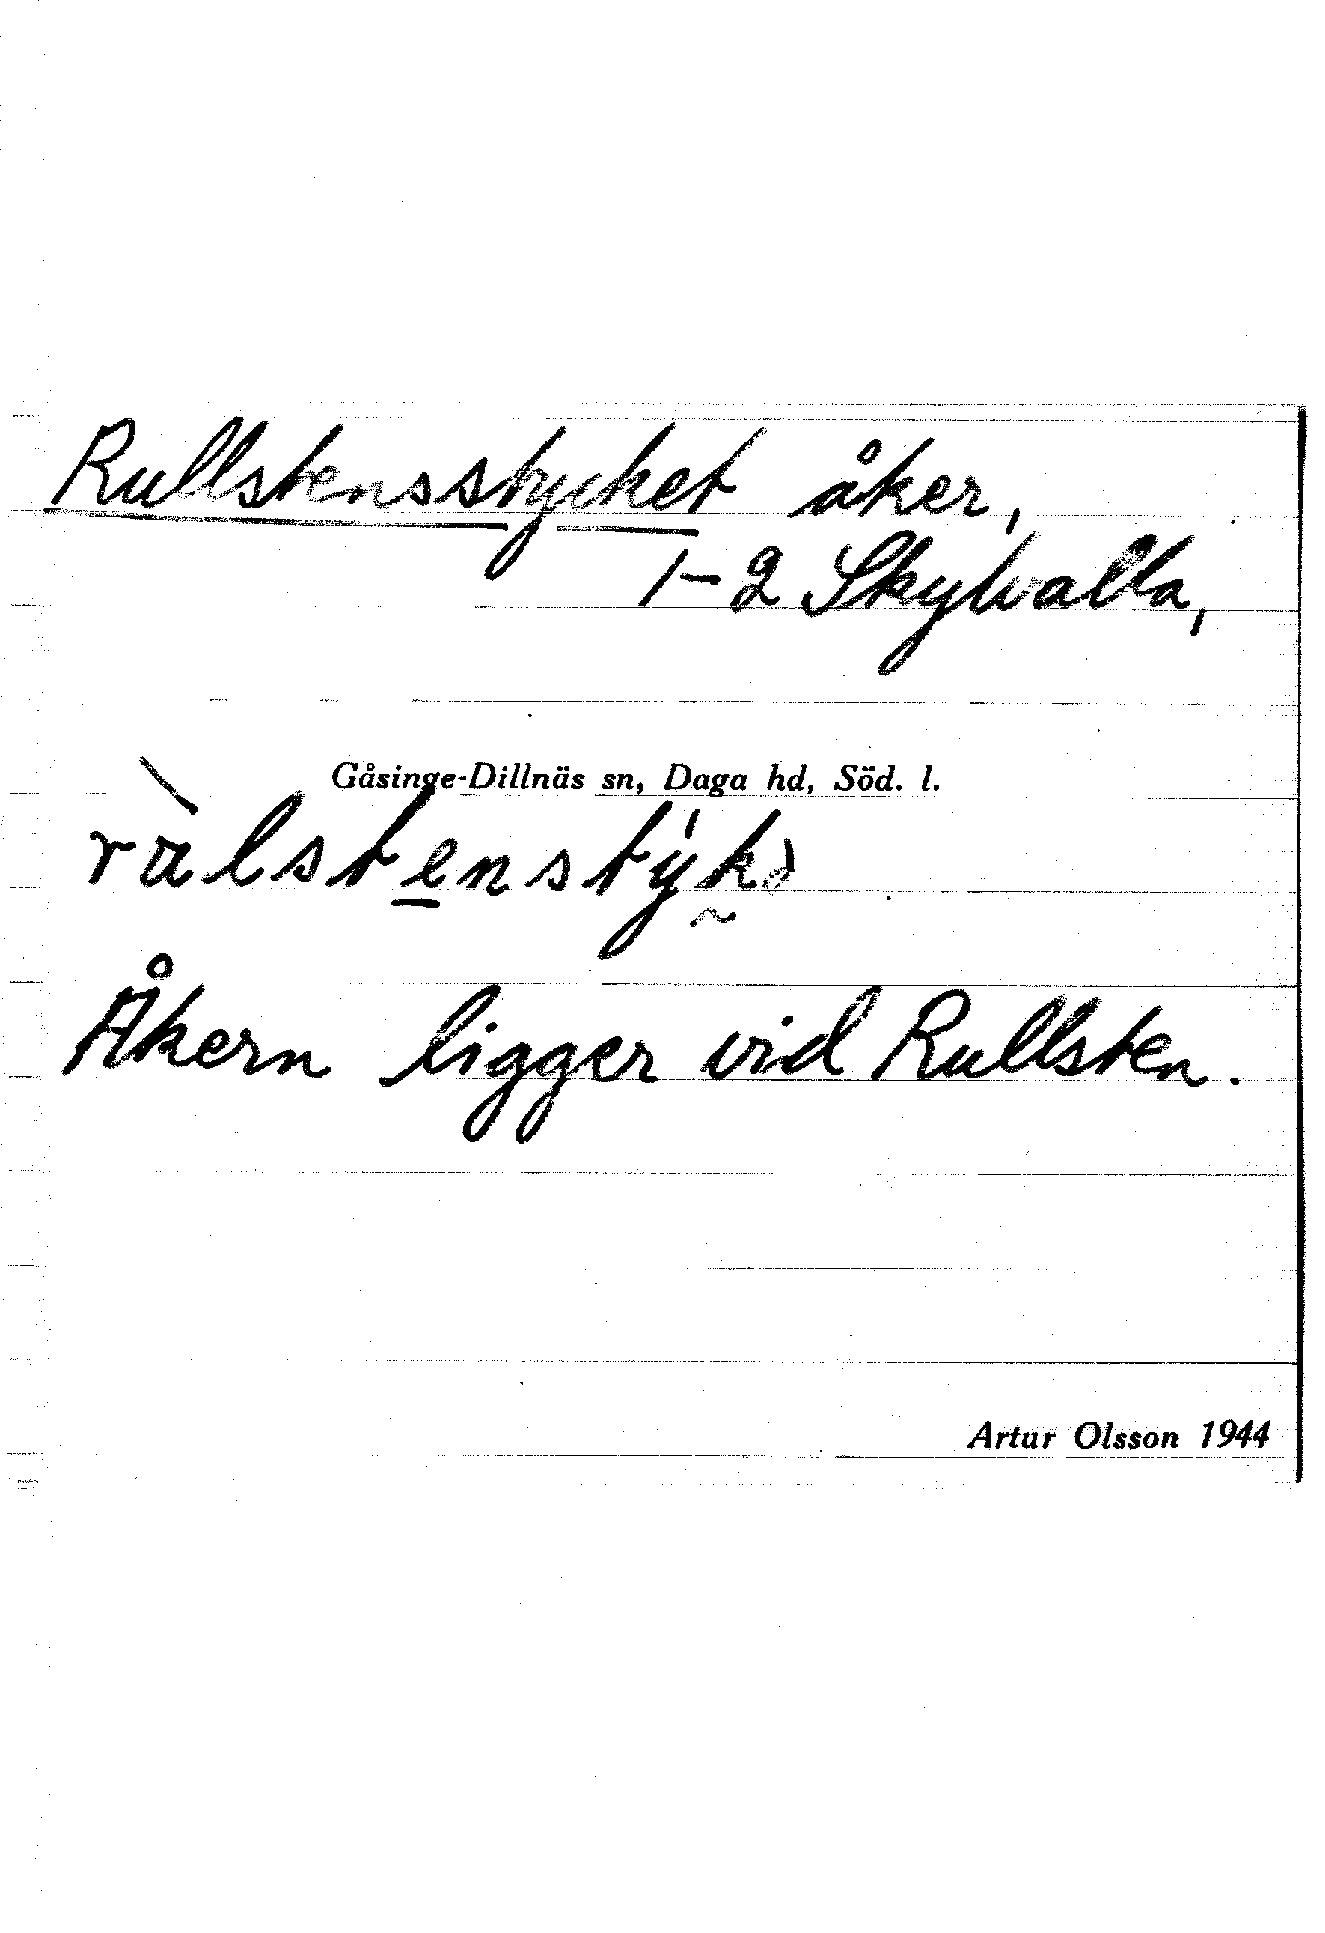 Rullstensstycket åker,
1-2 Skyhvalla,
Gåsinge-Dillnäs sn, Daga hd, Söd. l.
Åkern ligger vid Rullsten.
Artur Olsson 1944